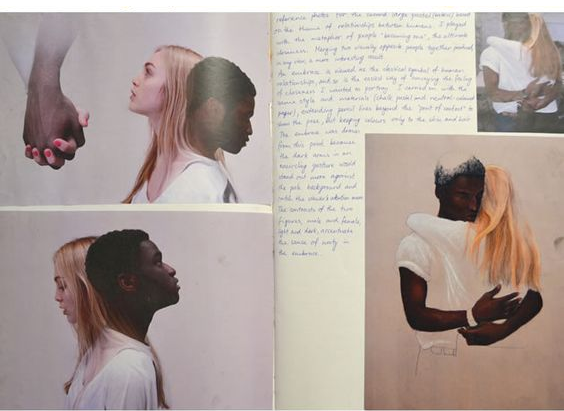 reference photos for the second large pastel (below) based
on the theme of relationships between humans. I played
with the metaphor of people "becoming one", the ultimate
closeness. Merging two visually opposite people together
is more interesting
An embrace is viewed as the classical symbol of human
relationships, and so is the easiest way of conveying the feeling
of closeness I wanted to portray. I carried on with the
same style and materials (chalk pastel and neutral coloured
paper), extending pencil lines beyond the "point of contact" to
show the pose, but keeping colours only to the skin and hair.
The embrace was drawn
from this pose because
the dark arms in an
encircling gesture would
stand out more against
the pale background and
catch the viewer's attention more.
The contrasts of the two
figures, male and female,
light and dark, accentuate
the sense of unity in
the embrace.